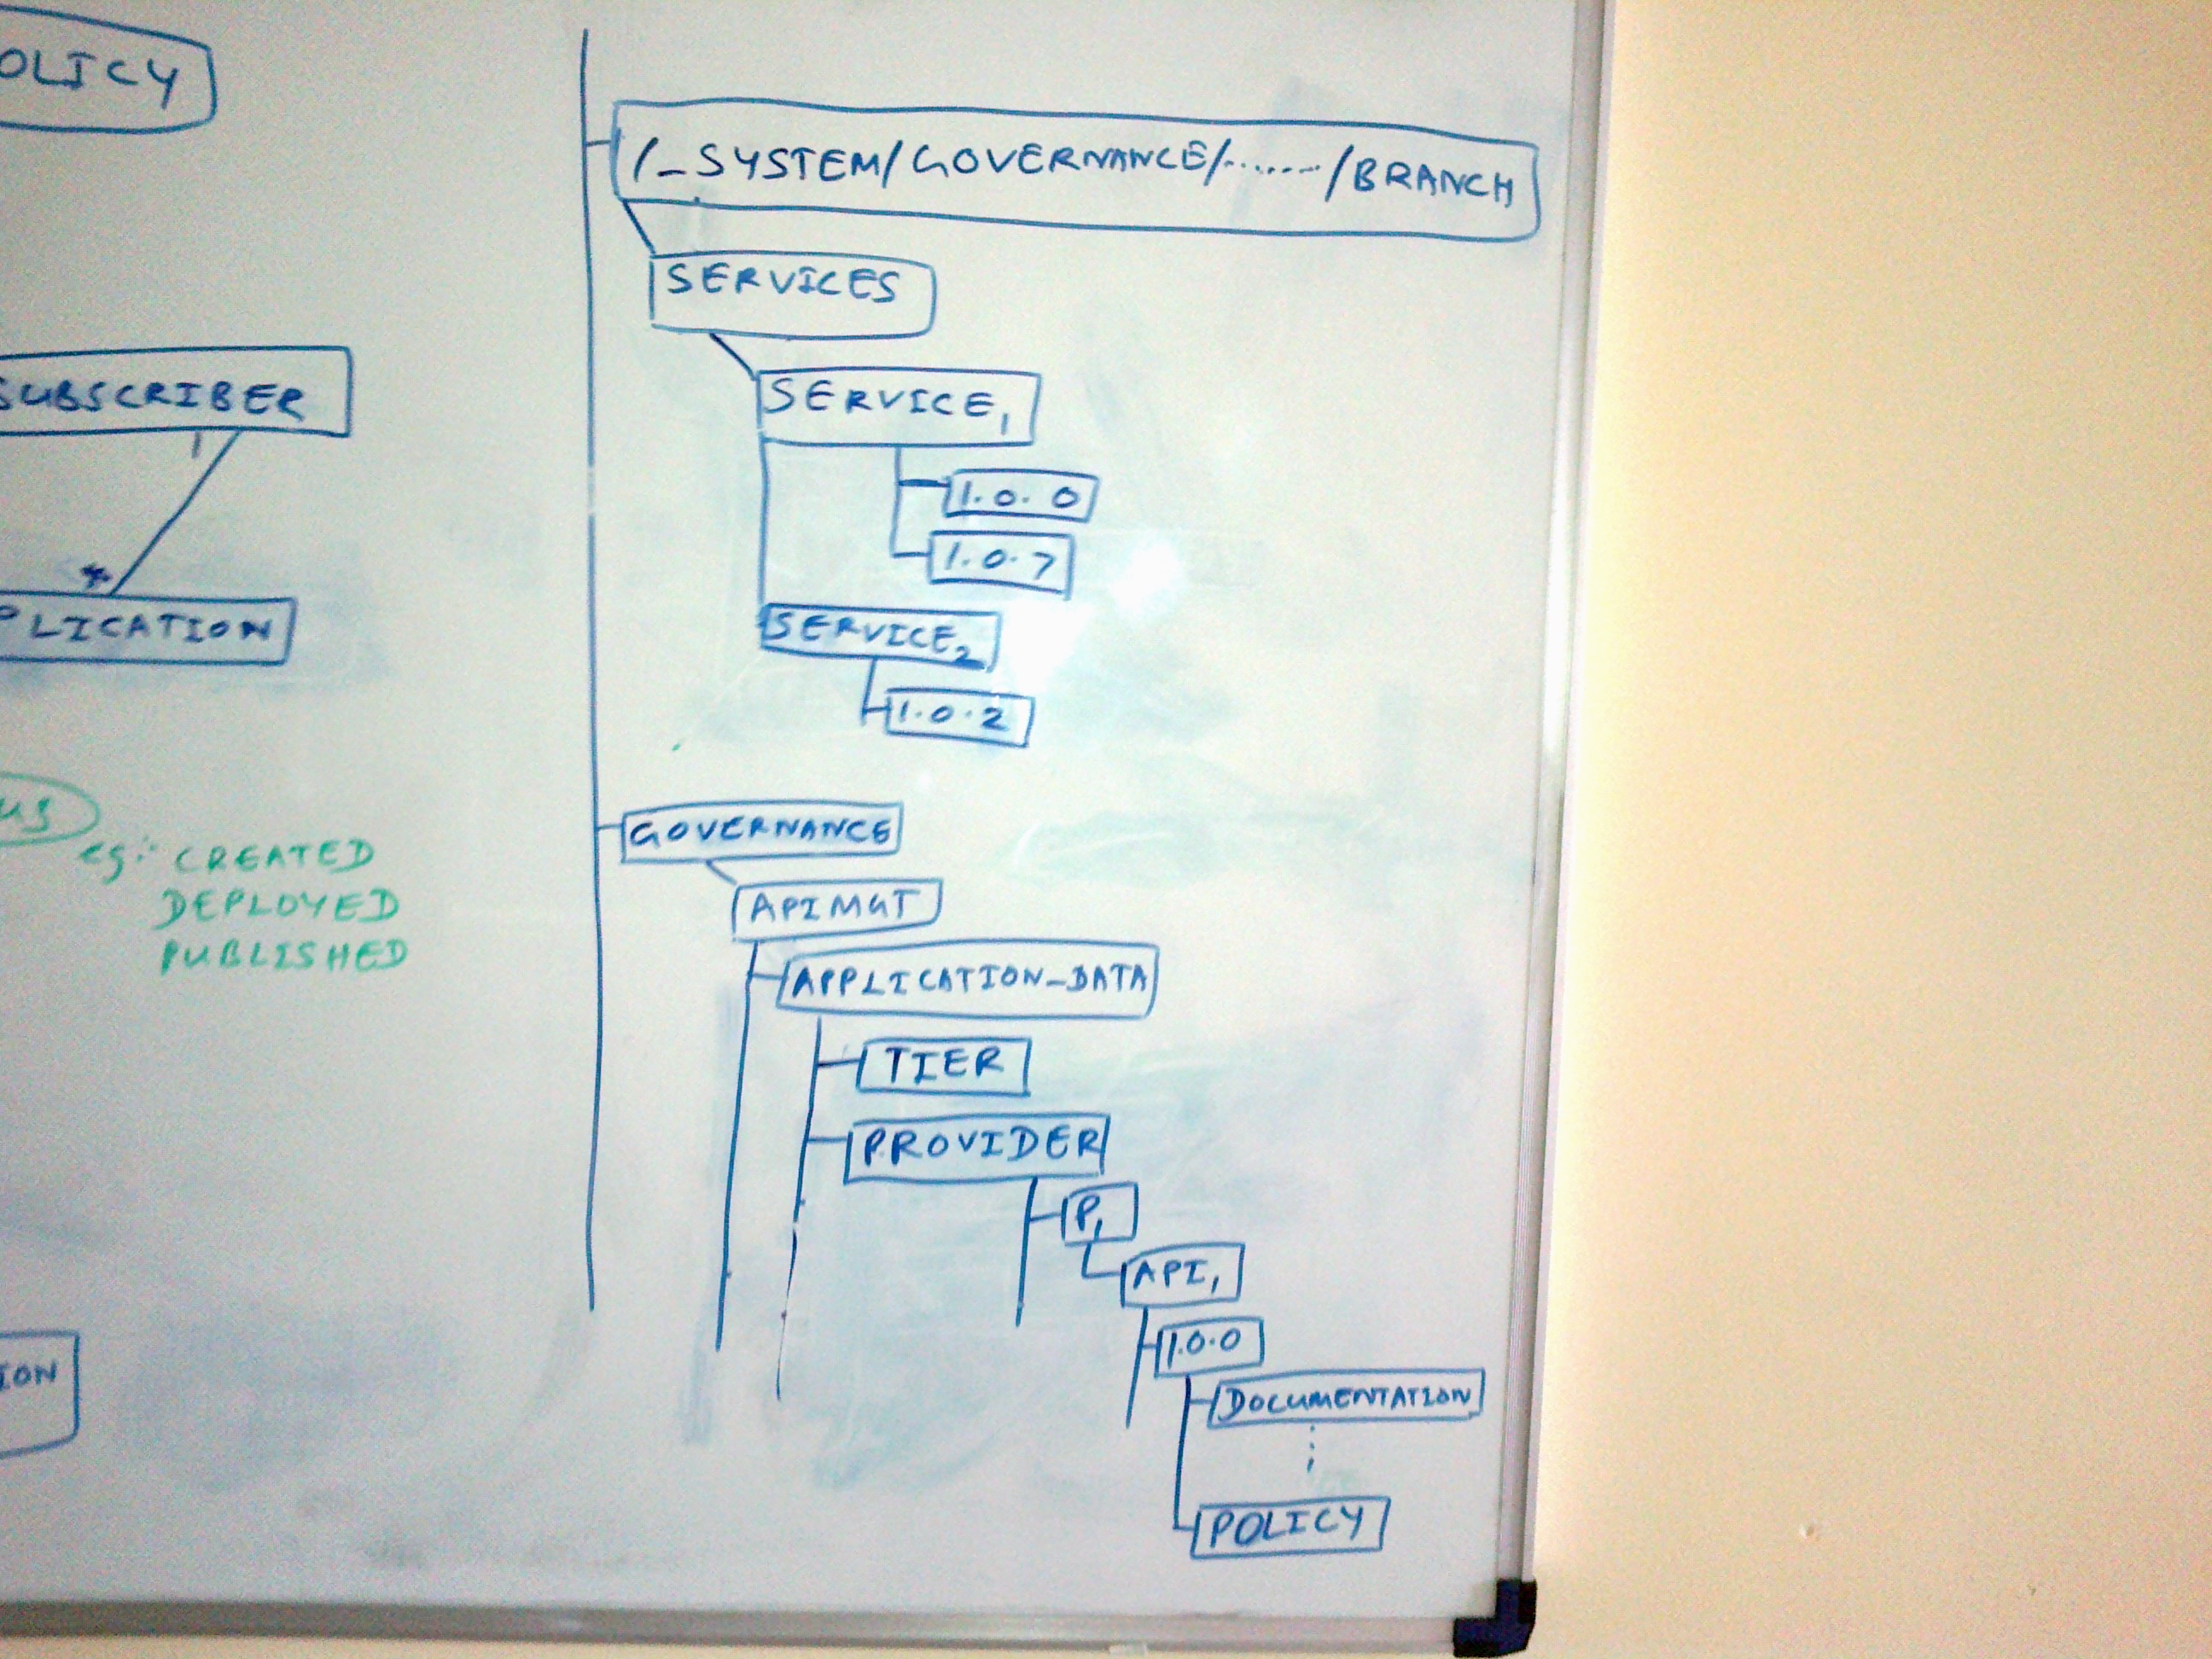 OLICY
SUBSCRIBER
1
*
PLICATION
us
eg:- CREATED
DEPLOYED
PUBLISHED
ION
/_SYSTEM/GOVERNANCE/......./BRANCH
SERVICES
SERVICE1
1.0.0
1.0.7
SERVICE2
1.0.2
GOVERNANCE
APIMGT
APPLICATION_DATA
TIER
PROVIDER
P1
API1
1.0.0
DOCUMENTATION
POLICY